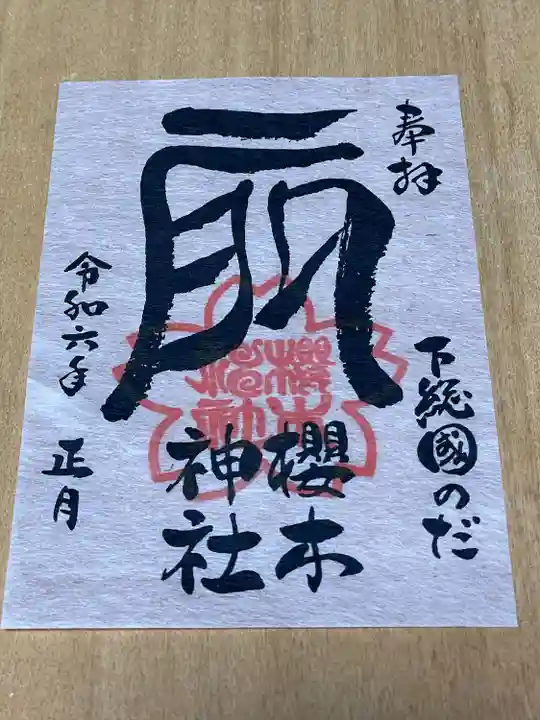 奉拝
下総國のだ
櫻木
神社
令和六年
正月